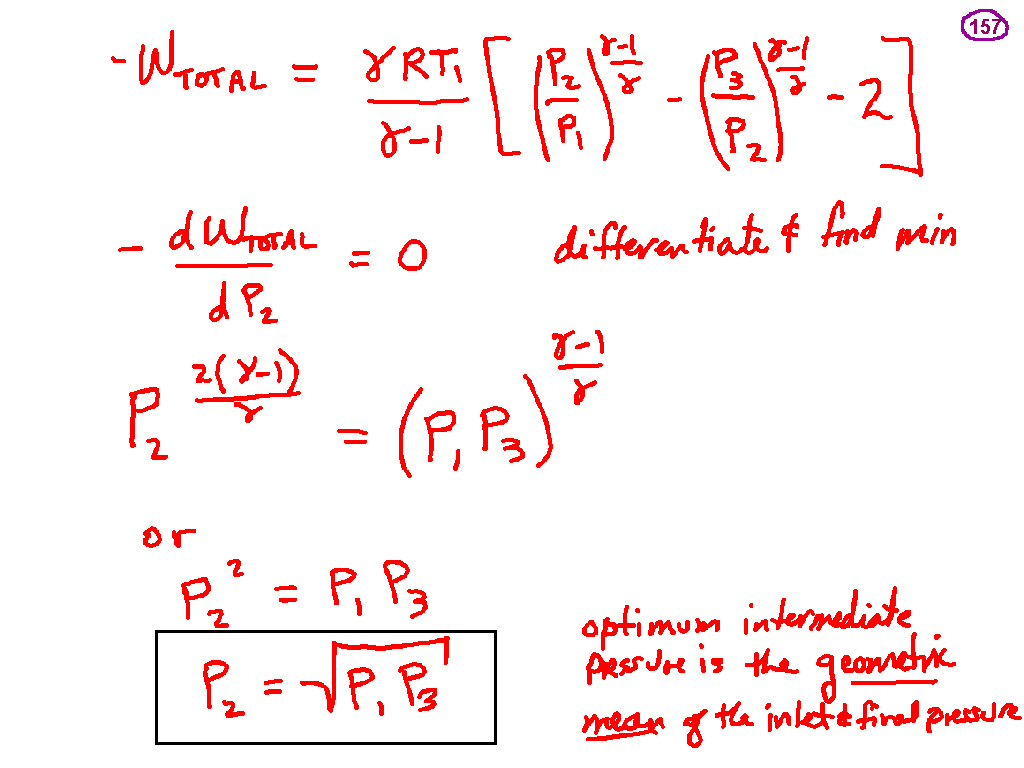 157
-W_TOTAL = γRT₁/(γ-1) [ (P₂/P₁)^((γ-1)/γ) - (P₃/P₂)^((γ-1)/γ) - 2 ]
- dW_TOTAL/dP₂ = 0 differentiate & find min
P₂^(2(γ-1)/γ) = (P₁ P₃)^((γ-1)/γ)
or
P₂² = P₁ P₃
P₂ = √(P₁ P₃)
optimum intermediate
pressure is the geometric
mean of the inlet & final pressure